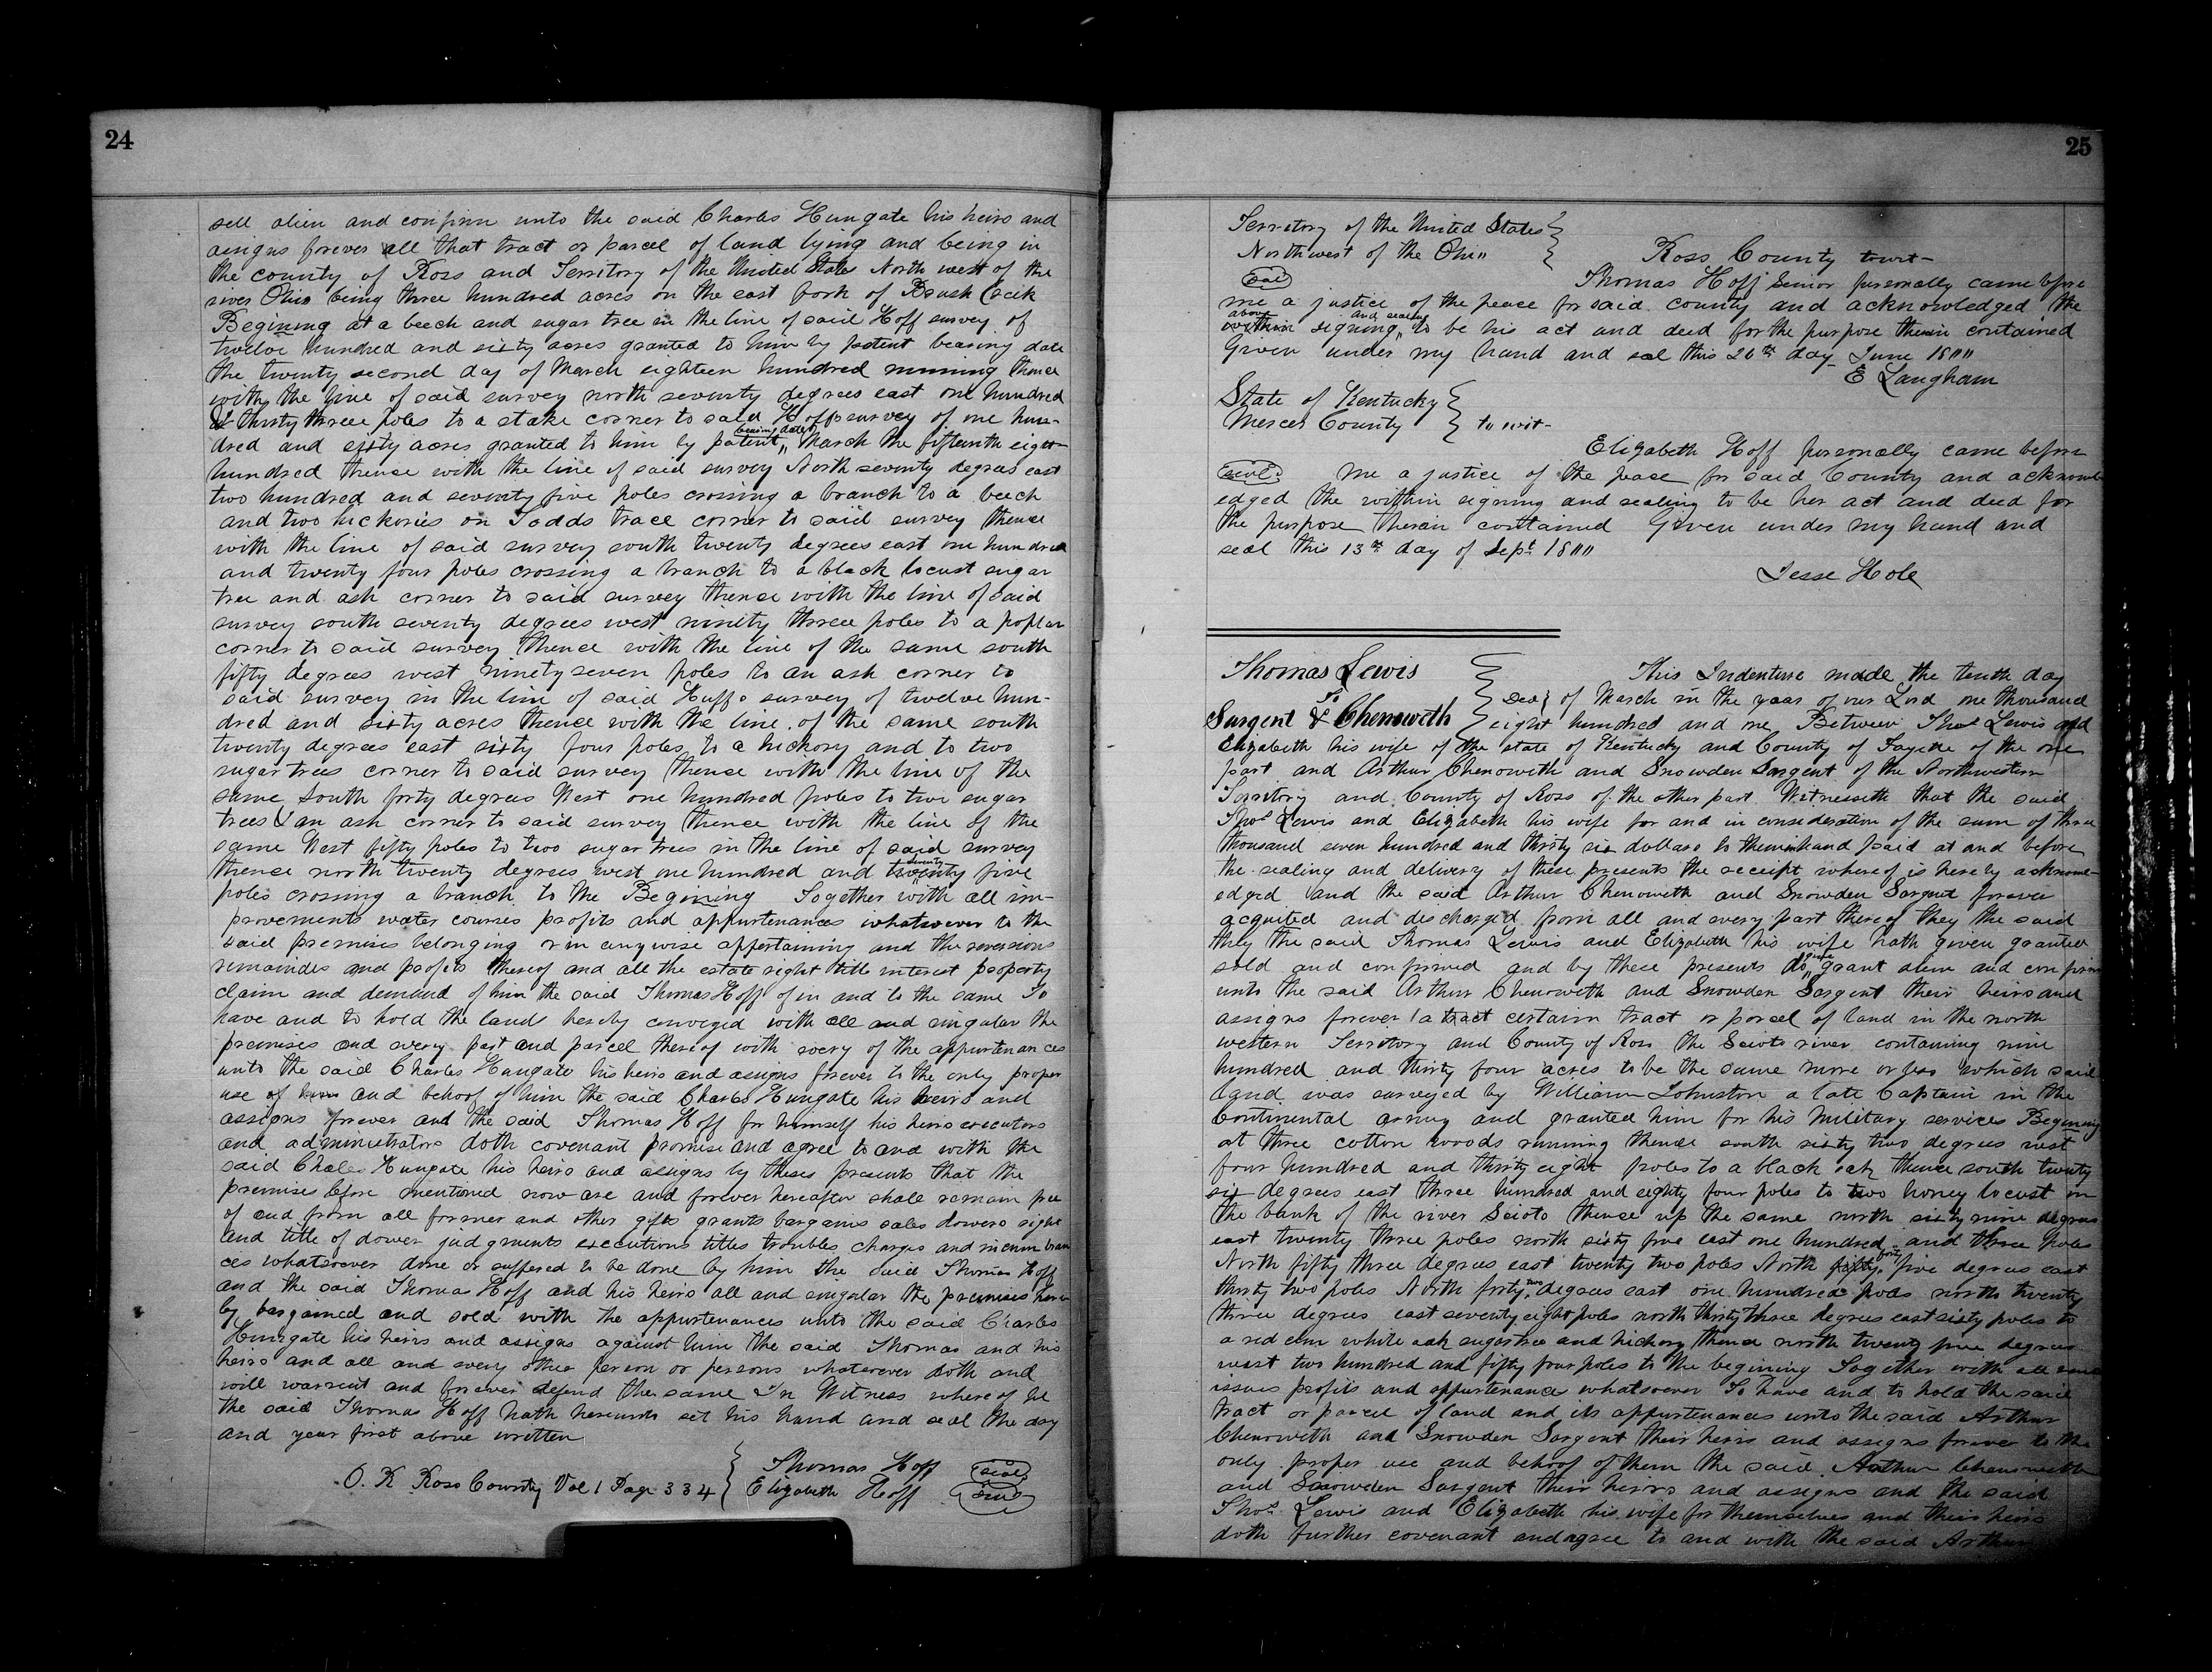 24
sell alien and confirm unto the said Charles Hungate his heirs and
assigns forever all that tract or parcel of land lying and being in
the county of Ross and Territory of the United States North west of the
river Ohio being three hundred acres on the east fork of Brush Creek
Begining at a beech and sugar tree in the line of said Hoff survey of
twelve hundred and sixty acres granted to him by patent bearing date
the twenty second day of March eighteen hundred running thence
with the line of said survey north seventy degrees east one hundred
& thirty three poles to a stake corner to said Hoffs survey of one hun-
dred and sixty acres granted to him by patent bearing date March the fifteenth eight-
hundred thense with the line of said survey North seventy degrees east
two hundred and seventy five poles crossing a branch to a beech
and two hickories on Todds trace corner to said survey thense
with the line of said survey south twenty degrees east one hundred
and twenty four poles crossing a branch to a black locust sugar
tree and ash corner to said survey thense with the line of said
survey south seventy degrees west ninety three poles to a poplar
corner to said survey thence with the line of the same south
fifty degrees west ninety seven poles to an ash corner to
said survey in the line of said Huffs survey of twelve hun-
dred and sixty acres thense with the line of the same south
twenty degrees east sixty four poles to a hickory and to two
sugar trees corner to said survey thense with the line of the
same South forty degrees West one hundred poles to two sugar
trees & an ash corner to said survey thense with the line of the
same West fifty poles to two sugar trees in the line of said survey
thense north twenty degrees west one hundred and twenty seventy five
poles crossing a branch to the Begining Together with all im-
provements water courses profits and appurtenances whatsoever to the
said premises belonging or in anywise appertaining and the reversions
remainder and profits thereof and all the estate right title interest property
claim and demand of him the said Thomas Hoff of in and to the same To
have and to hold the lands hereby conveyed with all and singular the
premises and every part and parcel thereof with every of the appurtenances
unto the said Charles Hungate his heirs and assigns forever to the only proper
use of and behoof of him the said Charles Hungate his heirs and
assigns forever and the said Thomas Hoff for himself his heirs executors
and administrators doth covenant promise and agree to and with the
said Chales Hungate his heirs and assigns by these presents that the
premises before mentioned now are and forever hereafter shall remain free
of and from all former and other gifts grants bargains sales dowers right
and title of dower judgments executions titles troubles charges and incumbran
ces whatsoever done or suffered to be done by him the said Thomas Hoff
and the said Thomas Hoff and his heirs all and singular the premises here
by bargained and sold with the appurtenances unto the said Charles
Hungate his heirs and assigns against him the said Thomas and his
heirs and all and every other person or persons whatsoever doth and
will warrent and forever defend the same In Witness whereof he
the said Thomas Hoff hath hereunto set his hand and seal the day
and year first above written
O. R Ross County Vol 1 Page 334 } Thomas Hoff seal
Elizabeth Hoff seal
25
Territory of the United States
Northwest of the Ohio } Ross County towit-
seal Thomas Hoff Senior personally came before
me a justice of the peace for said county and acknowledged the
within above signing and sealing to be his act and deed for the purpose therein contained
Given under my hand and seal this 26th day June 18""
E Langham
State of Kentucky
Mercer County } to wit-
Elizabeth Hoff personally came before
seal me a justice of the peace for said County and acknowl
edged the within signing and sealing to be her act and deed for
the purpose therein contained Given under my hand and
seal this 13th day of Sept 18""
Jesse Hole
Thomas Lewis
To
Sargent & Chenoweth } Deed { This Indenture made the tenth day
of March in the year of our Lord one thousand
eight hundred and one Between Thos Lewis and
Elizabeth his wife of the state of Kentucky and County of Fayette of the one
part and Arthur Chenowith and Snowden Sargent of the Northwestern
Territory and County of Ross of the other part Witnesseth that the said
Thos Lewis and Elizabeth his wife for and in consideration of the sum of three
thousand seven hundred and thirty six dollars to them in hand paid at and before
the sealing and delivery of these presents the receipt whereof is hereby acknowl-
edged and the said Arthur Chenoweth and Snowden Sargent forever
acquited and discharged from all and every part thereof they the said
they the said Thomas Lewis and Elizabeth his wife hath given granted
sold and confirmed and by these presents do give grant alien and confirm
unto the said Arthur Chenoweth and Snowden Sargent their heirs and
assigns forever a tract certain tract or parcel of land in the north
western Territory and County of Ross the Scioto river containing nine
hundred and thirty four acres to be the same more or less which said
land was surveyed by William Johnston a late Captain in the
Continental army and granted him for his Military services Begining
at three cotton woods running thense south sixty two degrees west
four hundred and thirty eight poles to a black oak thense south twenty
six degrees east three hundred and eighty four poles to two honey locust on
the bank of the river Scioto thense up the same north sixty nine degrees
east twenty three poles north sixty five east one hundred and three poles
North fifty three degrees east twenty two poles North fifty forty five degrees east
thirty two poles North forty two degrees east one hundred pods north twenty
three degrees east seventy eight poles north thirty three degrees east sixty poles to
a red elm white oak sugar tree and hickory thense north twenty five degrees
west two hundred and fifty four poles to the begining Together with all
issues profits and appurtenances whatsoever To have and to hold the said
tract or parcel of land and its appurtenances unto the said Arthur
Chenowith and Snowden Sargent their heirs and assigns forever to the
only proper use and behoof of them the said Arthur Chenoweth
and Snowden Sargent their heirs and assigns and the said
Thos Lewis and Elizabeth his wife for themselves and their heirs
doth further covenant and agree to and with the said Arthur